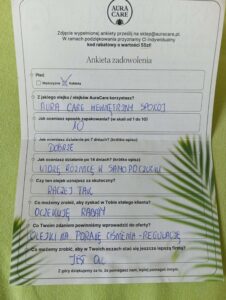 AURA
CARE
Zdjęcie wypełnionej ankiety prześlij na sklep@auracare.pl.
W ramach podziękowania przyznamy Ci indywidualny
kod rabatowy o wartości 55zł!
Ankieta zadowolenia
Płeć:
Mężczyzna X Kobieta
Z jakiego olejku / olejków AuraCare korzystasz?
AURA CARE WEWNĘTRZNY SPOKÓJ
Jak oceniasz sposób zapakowania? (w skali od 1 do 10)
10
Jak oceniasz działanie po 7 dniach? (krótko opisz)
DOBRZE
Jak oceniasz działanie po 14 dniach? (krótko opisz)
WIDZĘ RÓŻNICE W SAMOPOCZUCIU
Czy ten olejek uznajesz za skuteczny?
RACZEJ TAK
Co możemy zrobić, aby zyskać w Tobie stałego klienta?
OCZEKUJĘ RABATY
Co Twoim zdaniem powinniśmy wprowadzić do oferty?
OLEJKI NA POPRAWĘ CIŚNIENIA - REGULACJĘ
Co możemy zrobić, aby w Twoich oczach stać się jeszcze lepszą firmą?
JEST OK
Z góry dziękujemy za to, że pomagasz nam, lepiej pomagać innym.